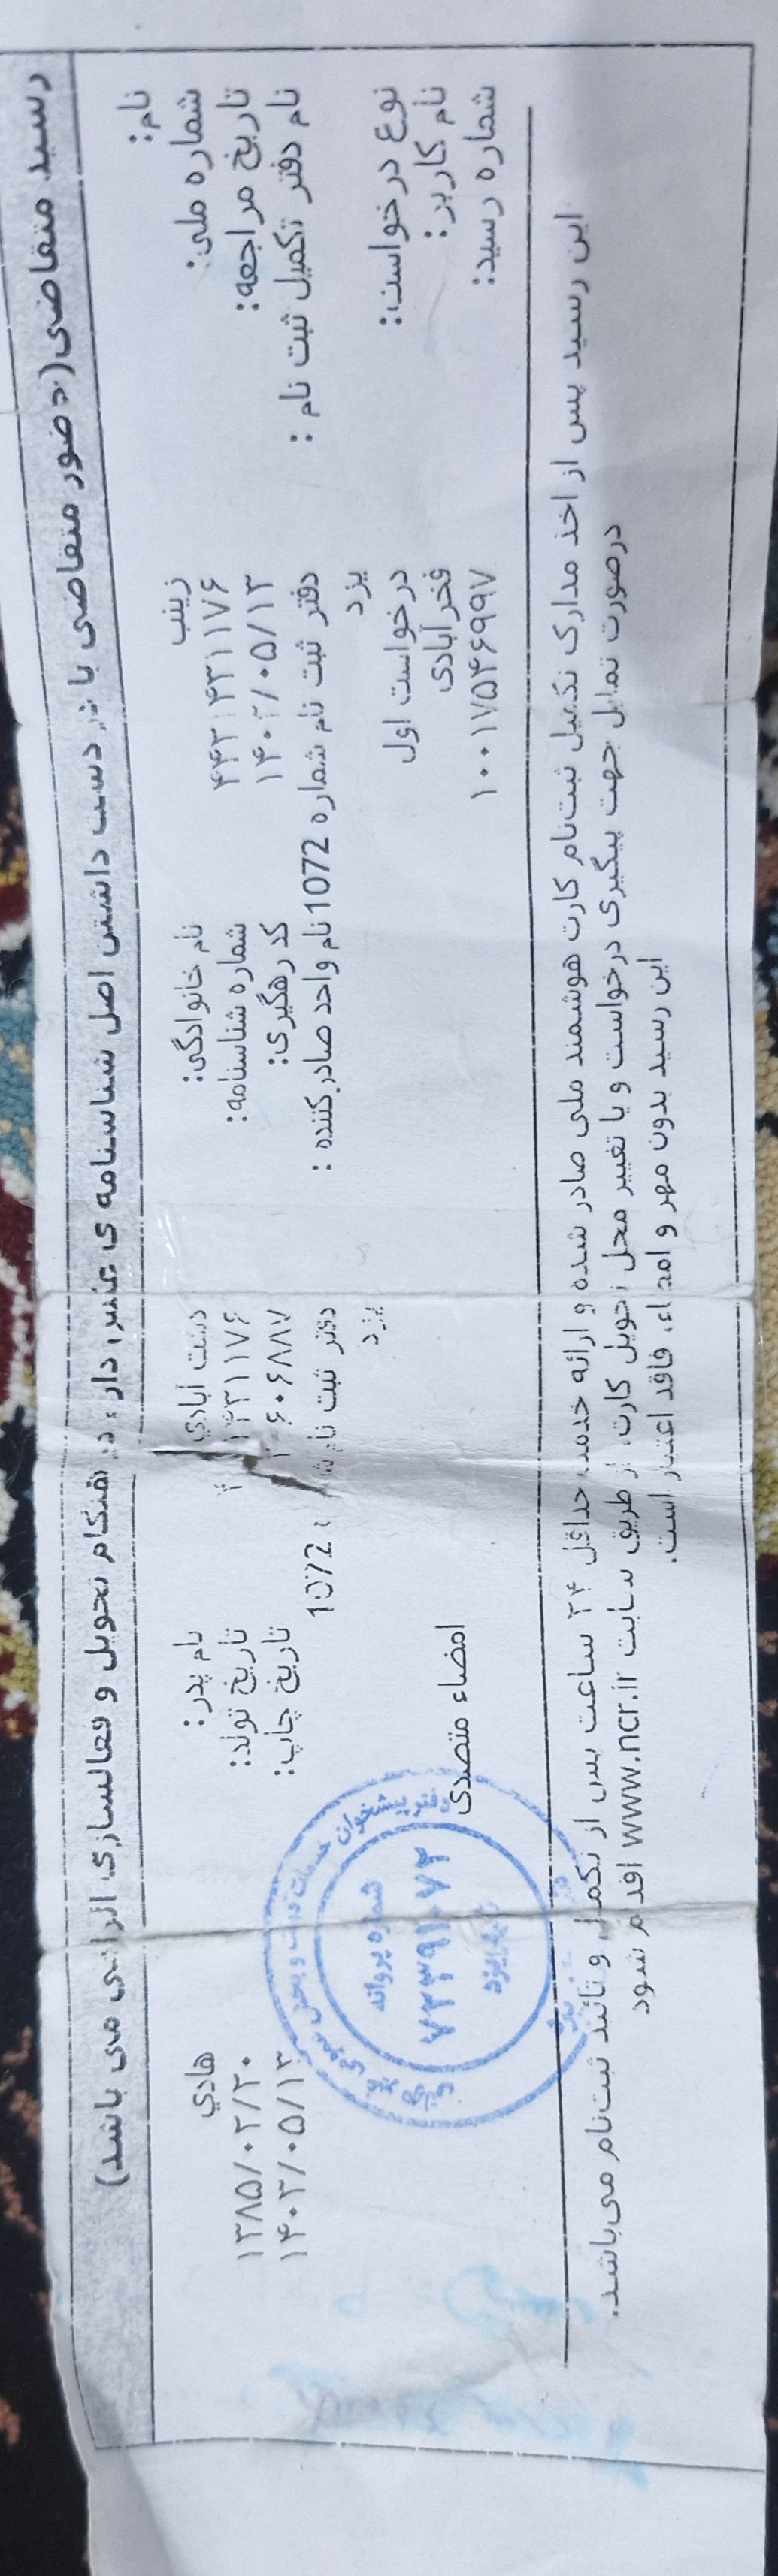 رسید متقاضی(حضور متقاضی با در دست داشتن اصل شناسنامه ی عکس دار ، در هنگام تحویل و فعالسازی الزامی می باشد)
نام: زینب نام خانوادگی: دشت آبادي نام پدر: هادي
شماره ملی: ۴۴۲۰۴۳۱۱۷۶ شماره شناسنامه: تاریخ تولد: ۱۳۸۵/۰۲/۲۰
تاریخ مراجعه: ۱۴۰۳/۰۵/۱۳ کد رهگیری: تاریخ چاپ: ۱۴۰۳/۰۵/۱۳
نام دفتر تکمیل ثبت نام : دفتر ثبت نام شماره 1072 نام واحد صادر کننده : دفتر ثبت نام 1072
یزد یزد
نوع درخواست: درخواست اول
نام کاربر: فخرآبادی
شماره رسید: ۱۰۰۱۷۵۴۶۹۹۷
امضاء متصدی
دفتر پیشخوان خدمات دولت و بخش عمومی
شماره پروانه
۷۲۳۹۱۰۷۲
یزد
این رسید پس از اخذ مدارک تکمیل ثبت‌نام کارت هوشمند ملی صادر شده و ارائه خدمت حداقل ۲۴ ساعت پس از تکمیل و تائید ثبت‌نام می‌باشد.
درصورت تمایل جهت پیگیری درخواست و یا تغییر محل تحویل کارت، از طریق سایت www.ncr.ir اقدام شود
این رسید بدون مهر و امضاء، فاقد اعتبار است.